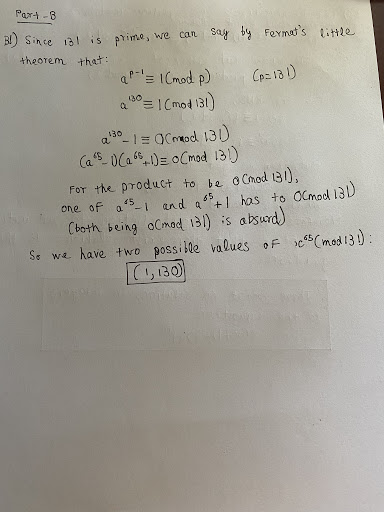 Part-B
B1) Since 131 is prime, we can say by Fermat's little
theorem that:
a^{p-1} ≡ 1(mod p) (p=131)
a^{130} ≡ 1(mod 131)
a^{130}-1 ≡ 0(mod 131)
(a^{65}-1)(a^{65}+1) ≡ 0(mod 131)
For the product to be 0(mod 131),
one of a^{65}-1 and a^{65}+1 has to 0(mod 131)
(both being 0(mod 131) is absurd)
So we have two possible values of x^{65}(mod 131):
(1,130)